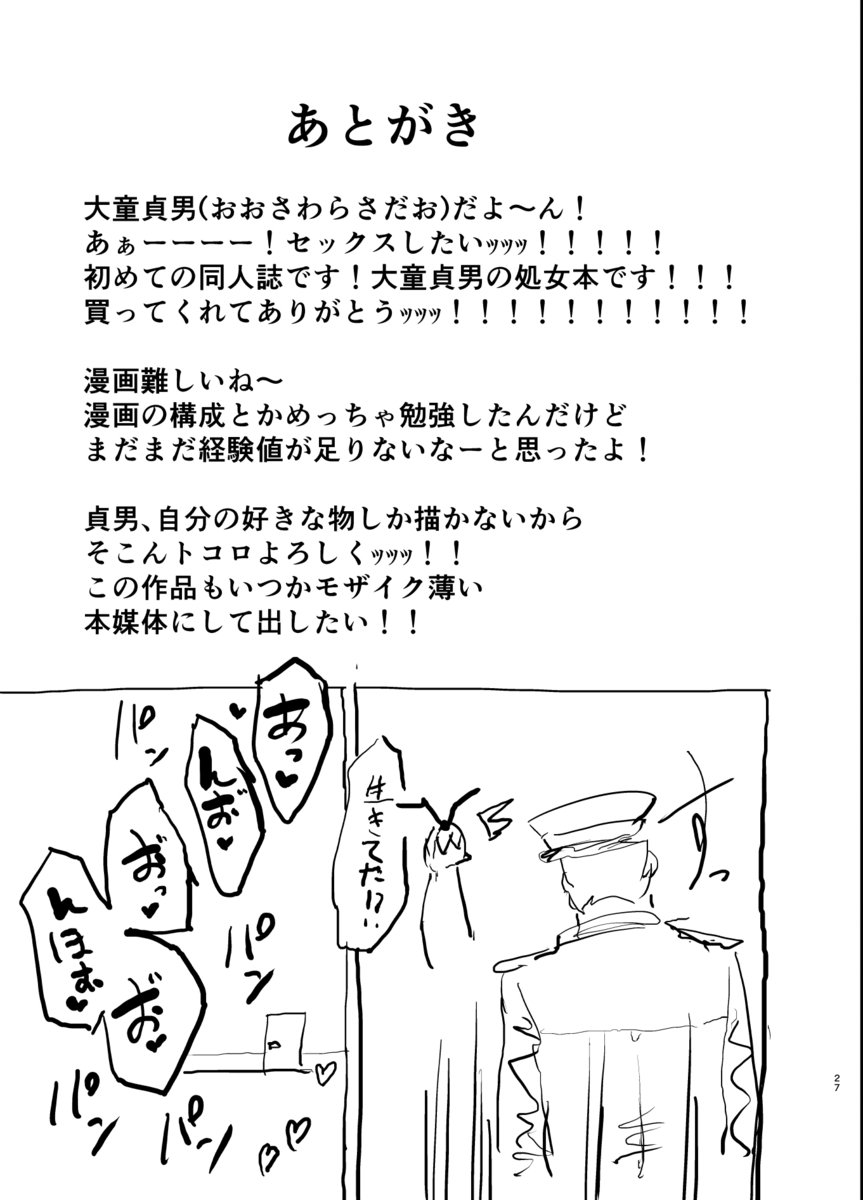 あとがき
大童貞男(おおさわらさだお)だよ〜ん！
あぁーーーー！セックスしたいッッッ！！！！！
初めての同人誌です！大童貞男の処女本です！！！
買ってくれてありがとうッッッ！！！！！！！！！！！
漫画難しいね〜
漫画の構成とかめっちゃ勉強したんだけど
まだまだ経験値が足りないなーと思ったよ！
貞男、自分の好きな物しか描かないから
そこんトコロよろしくッッッ！！
この作品もいつかモザイク薄い
本媒体にして出したい！！
すっ
生きてた!?
あっ♥
んお♥
おっ♥
お♥
んほお♥
パン
パン
パン
パン
27